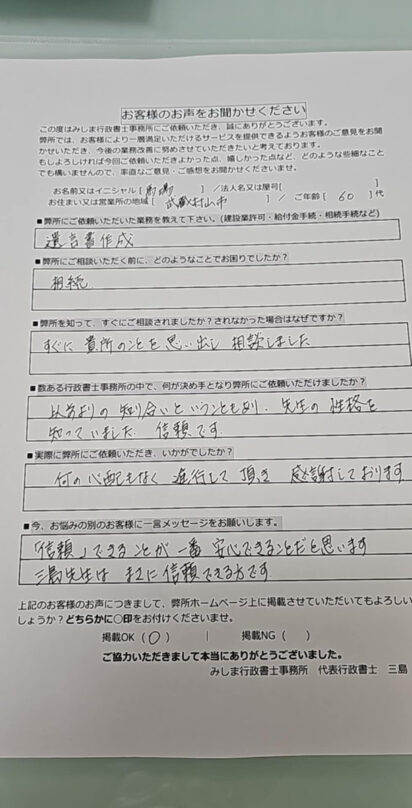 お客様のお声をお聞かせください
この度はみしま行政書士事務所にご依頼いただき、誠にありがとうございます。
弊所では、お客様により一層満足いただけるサービスを提供できるようお客様のご意見をお聞
かせいただき、今後の業務改善に努めさせていただきたいと考えております。
もしよろしければ今回ご依頼いただきよかった点、嬉しかった点など、どのような些細なこと
でも構いませんので、率直なご意見・ご感想をお聞かせくださいませ。
お名前又はイニシャル [ ] /法人名又は屋号[ ]
お住まい又は営業所の地域 [ 武蔵村山市 ] / ご年齢 [ 60 ] 代
■弊所にご依頼いただいた業務を教えて下さい。(建設業許可・給付金手続・相続手続など)
遺言書作成
■弊所にご相談いただく前に、どのようなことでお困りでしたか?
相続
■弊所を知って、すぐにご相談されましたか?されなかった場合はなぜですか?
すぐに 貴所のことを思い出し 相談しました
■数ある行政書士事務所の中で、何が決め手となり弊所にご依頼いただけましたか?
以前よりの知り合いということもあり、先生の性格を
知っていました 信頼です.
■実際に弊所にご依頼いただき、いかがでしたか?
何の心配もなく 進行して頂き 感謝しております
■今、お悩みの別のお客様に一言メッセージをお願いします。
「信頼」できることが一番 安心できることだと思います
三島先生は まさに信頼できる方です
上記のお客様のお声につきまして、弊所ホームページ上に掲載させていただいてもよろしい
しょうか?どちらかに○印をお付けくださいませ。
掲載OK ( ○ ) | 掲載NG ( )
ご協力いただきまして本当にありがとうございました。
みしま行政書士事務所 代表行政書士 三島